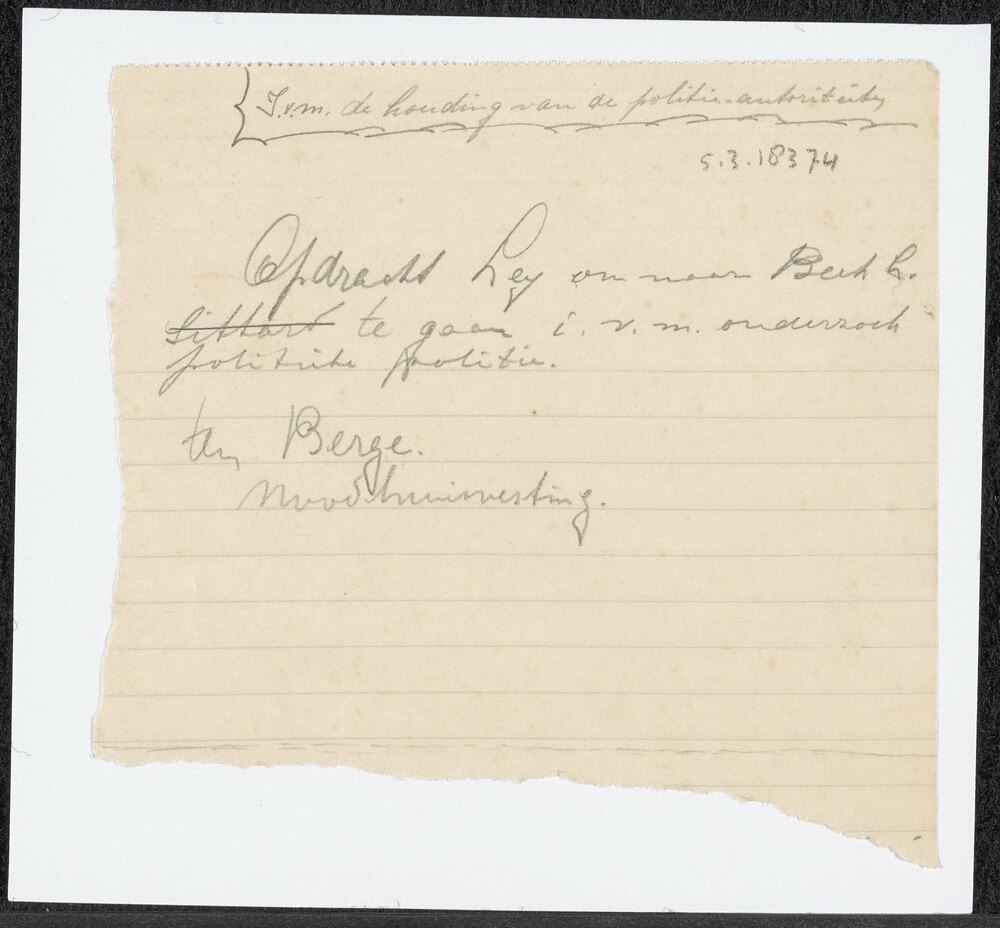 I.v.m. de houding van de politie-autoriteiten
5.3.18374
Opdracht Ley om naar Beek L.
Sittard te gaan i.v.m. onderzoek
politieke politie.
ten Berge.
Noodhuisvesting.